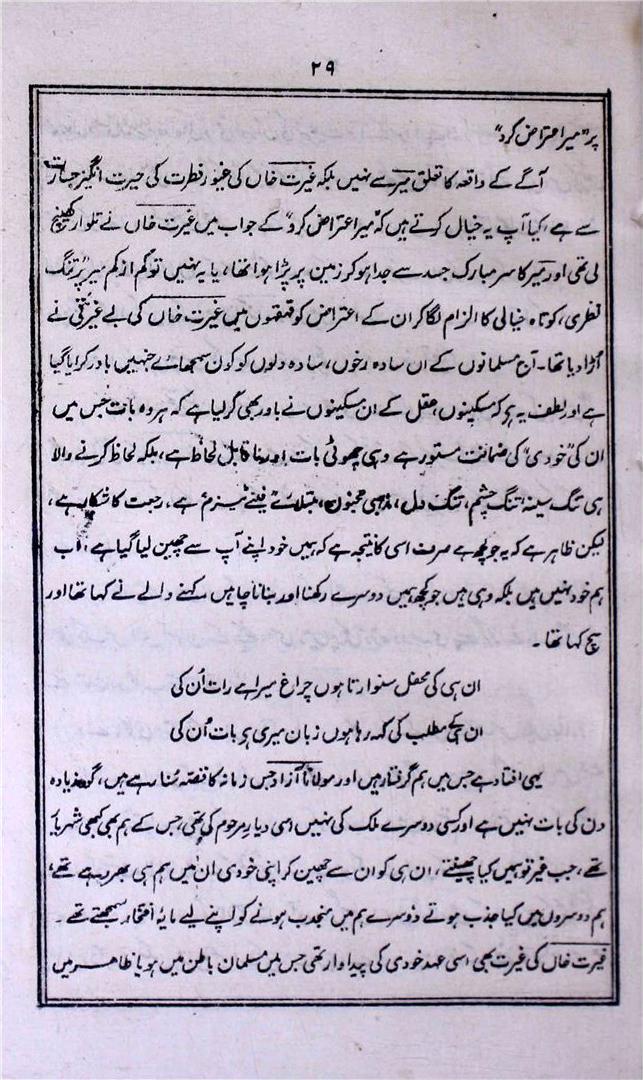 ۲۹
پر ”میرا اعتراض کرد“
آگے کے واقعہ کا تعلق میر سے نہیں بلکہ غیرت خاں کی غیور فطرت کی حیرت انگیز جسارت
سے ہے، کیا آپ یہ خیال کرتے ہیں کہ ”میرا اعتراض کرد“ کے جواب میں غیرت خاں نے تلوار کھینچ
لی تھی اور میر کا سر مبارک جسد سے جدا ہو کر زمین پر پڑا ہوا تھا، یا یہ نہیں تو کم از کم میر پر تنگ
فطری، کوتاہ خیالی کا الزام لگا کر ان کے اعتراض کو قہقہوں میں غیرت خاں کی بے غیرتی نے
اڑا دیا تھا۔ آج مسلمانوں کے ان سادہ رخوں، سادہ دلوں کو کون سمجھائے جنہیں باور کرایا گیا
ہے اور لطف یہ ہے کہ مسکینوں، عقل کے ان مسکینوں نے باور بھی کر لیا ہے کہ ہر وہ بات جس میں
ان کی ”خودی“ کی ضمانت مستور ہے وہی چھوٹی بات اور ناقابل لحاظ ہے، بلکہ لحاظ کرنے والا
ہی تنگ سینہ، تنگ چشم، تنگ دل، مذہبی مجنون، مبتلائے فینے ٹیزم ہے، رجعت کا شکار ہے،
لیکن ظاہر ہے کہ یہ جو کچھ ہے صرف اسی کا نتیجہ ہے کہ ہمیں خود اپنے آپ سے چھین لیا گیا ہے، اب
ہم خود نہیں ہیں بلکہ وہی ہیں جو کچھ ہمیں دوسرے رکھنا اور بنانا چاہیں، کہنے والے نے کہا تھا اور
سچ کہا تھا۔
ان ہی کی محفل سنوارتا ہوں چراغ میرا ہے رات اُن کی
ان کے مطلب کی کہہ رہا ہوں زبان میری ہے بات اُن کی
یہی افتاد ہے جس میں ہم گرفتار ہیں اور مولانا آزاد جس زمانہ کا قصہ سُنا رہے ہیں، گو زیادہ
دن کی بات نہیں ہے اور کسی دوسرے ملک کی نہیں اسی دیار مرحوم کی تھی، جس کے ہم بھی کبھی شہریار
تھے، جب غیر تو ہمیں کیا چھینتے، ان ہی کو ان سے چھین کر اپنی خودی ان میں ہم ہی بھر رہے تھے،
ہم دوسروں میں کیا جذب ہوتے دُوسرے ہم میں منجذب ہونے کو اپنے لیے مایۂ افتخار سمجھتے تھے۔
غیرت خاں کی غیرت بھی اسی عہد خودی کی پیداوار تھی جس میں مسلمان باطن میں ہو یا ظاہر میں